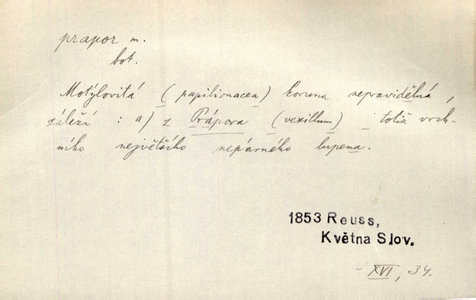 prapor m.
bot.
Motýlovitá (papilionacea) koruna nepravidělná,
záleží : a) z Prápora (vexillum) totiž vrch-
ního největšího nepárného lupena.
1853 Reuss,
Května Slov.
- XVI, 34.